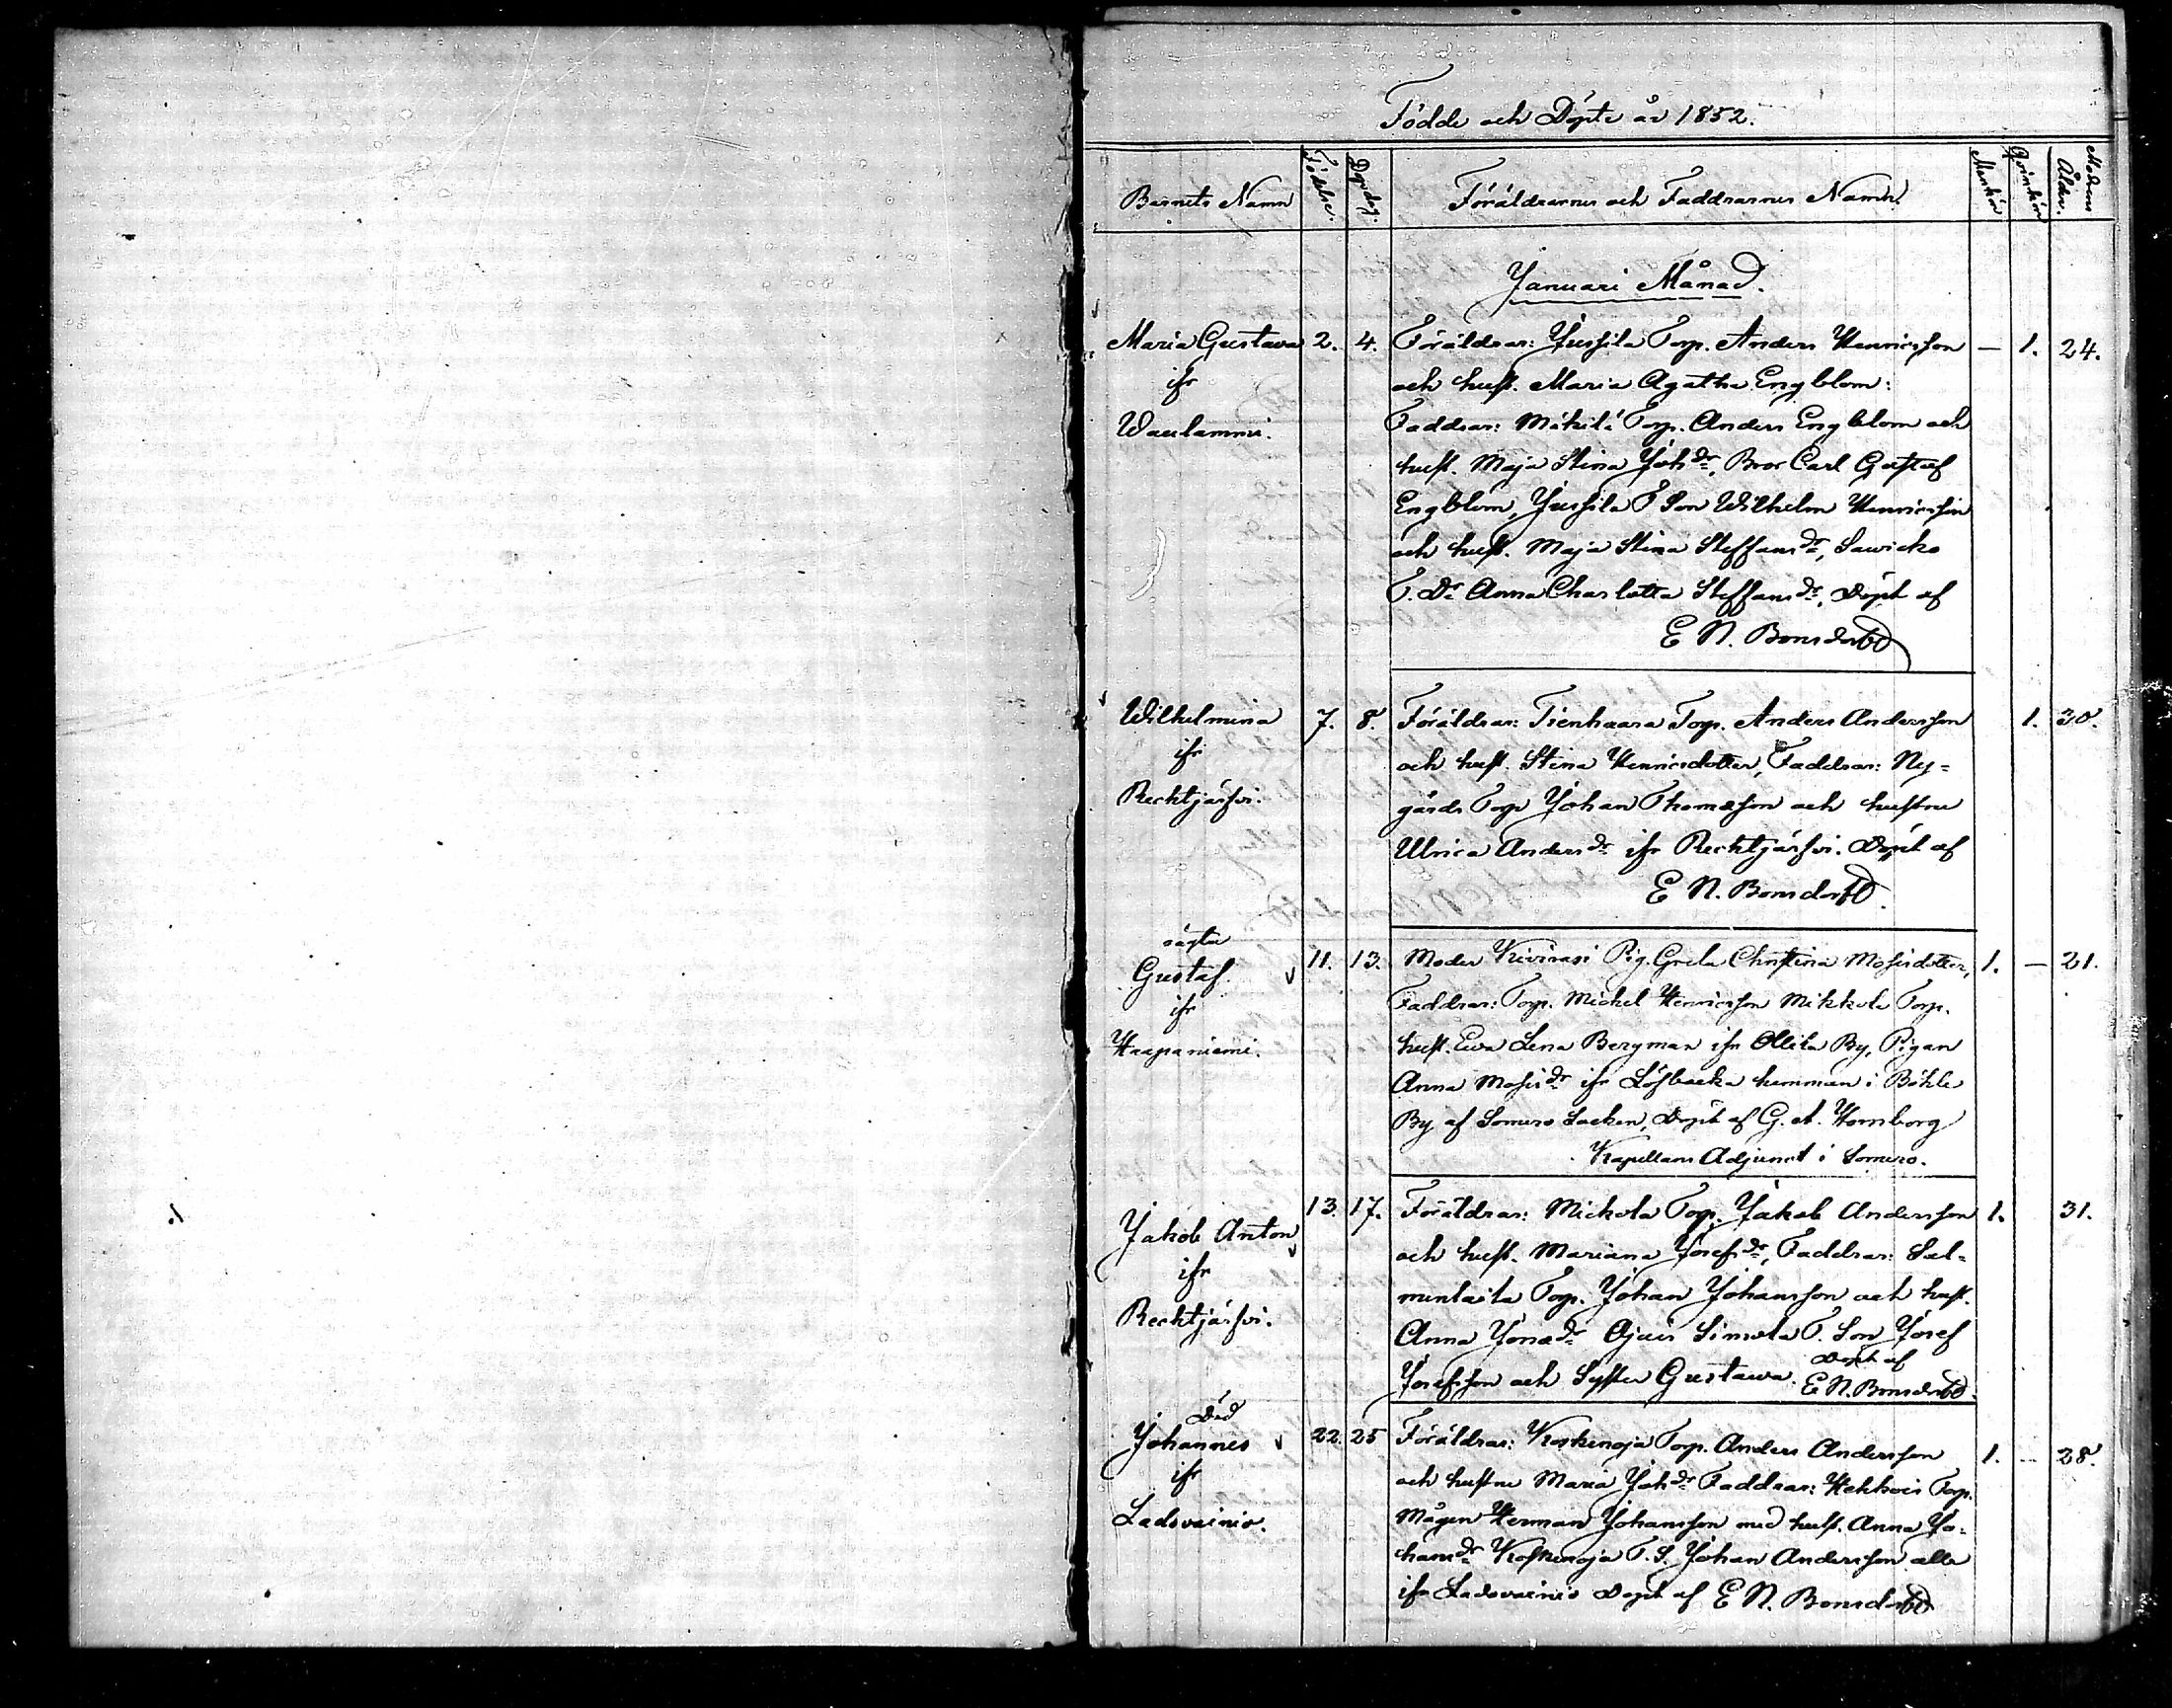 Födde och Döpte år 1852.
Barnets Namn Födelse. Döpedag. Föräldrarnes och Faddrarnes Namn. Mankön Qvinkön Modrens Ålder.
Januari Månad.
Maria Gustava 2. 4. Föräldrar: Jussila Torp. Anders Henricsson — 1. 24.
ifr och hust. Maria Agatha Engblom:
Waulammi. Faddrar: Mikilä Torp. Anders Engblom och
hust. Maja Stina Johdr, Bror Carl Gustaf
Engblom, Jussila T Son Wilhelm Henricsson
och hust. Maja Stina Steffansdr, Sawicko
T. Dr Anna Charlotta Steffansdr, Döpt af
E N. Bonsdorff
Wilhelmina 7. 8. Föräldrar: Tienhaara Torp. Anders Andersson 1. 30.
ifr och hust. Stina Henricsdotter, Faddrar: Ny=
Rechtjärfvi. gårds Torp Johan Thomasson och hustru
Ulrica Andersdr ifr Rechtjärfvi. Döpt af
E N. Bonsdorff.
oägta
Gustaf 11. 13. Moder Kivirasi Pig. Greta Christina Mosisdotter, 1. — 21.
ifr Faddrar: Torp. Michel Henricsson Mikkola Torp.
Haapaniemi. hust. Ewa Lena Bergman ifr Ollila By, Pigan
Anna Mosisdr ifr Löfbacka hemman i Böhle
By af Somero Socken, Döpt af G. A. Homborg
Kapellans Adjunct i Somero.
Jakob Anton 13. 17. Föräldrar: Mickola Torp. Jakob Andersson 1. 31.
ifr och hust. Mariana Josefsdr, Faddrar: Sal=
Rechtjärfvi. mentaita Torp. Johan Johansson och hust.
Anna Jonasdr Ojais Simola T. Son Josef
Josefsson och Syster Gustawa. Döpt af
E N. Bonsdorff.
Död
Johannes 22. 25 Föräldrar: Koskenoja Torp. Anders Andersson 1. — 28.
ifr och hustru Maria Johdr Faddrar: Torp.
Ladovainio. Mågen Herman Johansson med hust. Anna Jo=
hansdr Koskenoja T. S. Johan Andersson alla
ifr Ladovainio Döpt af E N. Bonsdorff